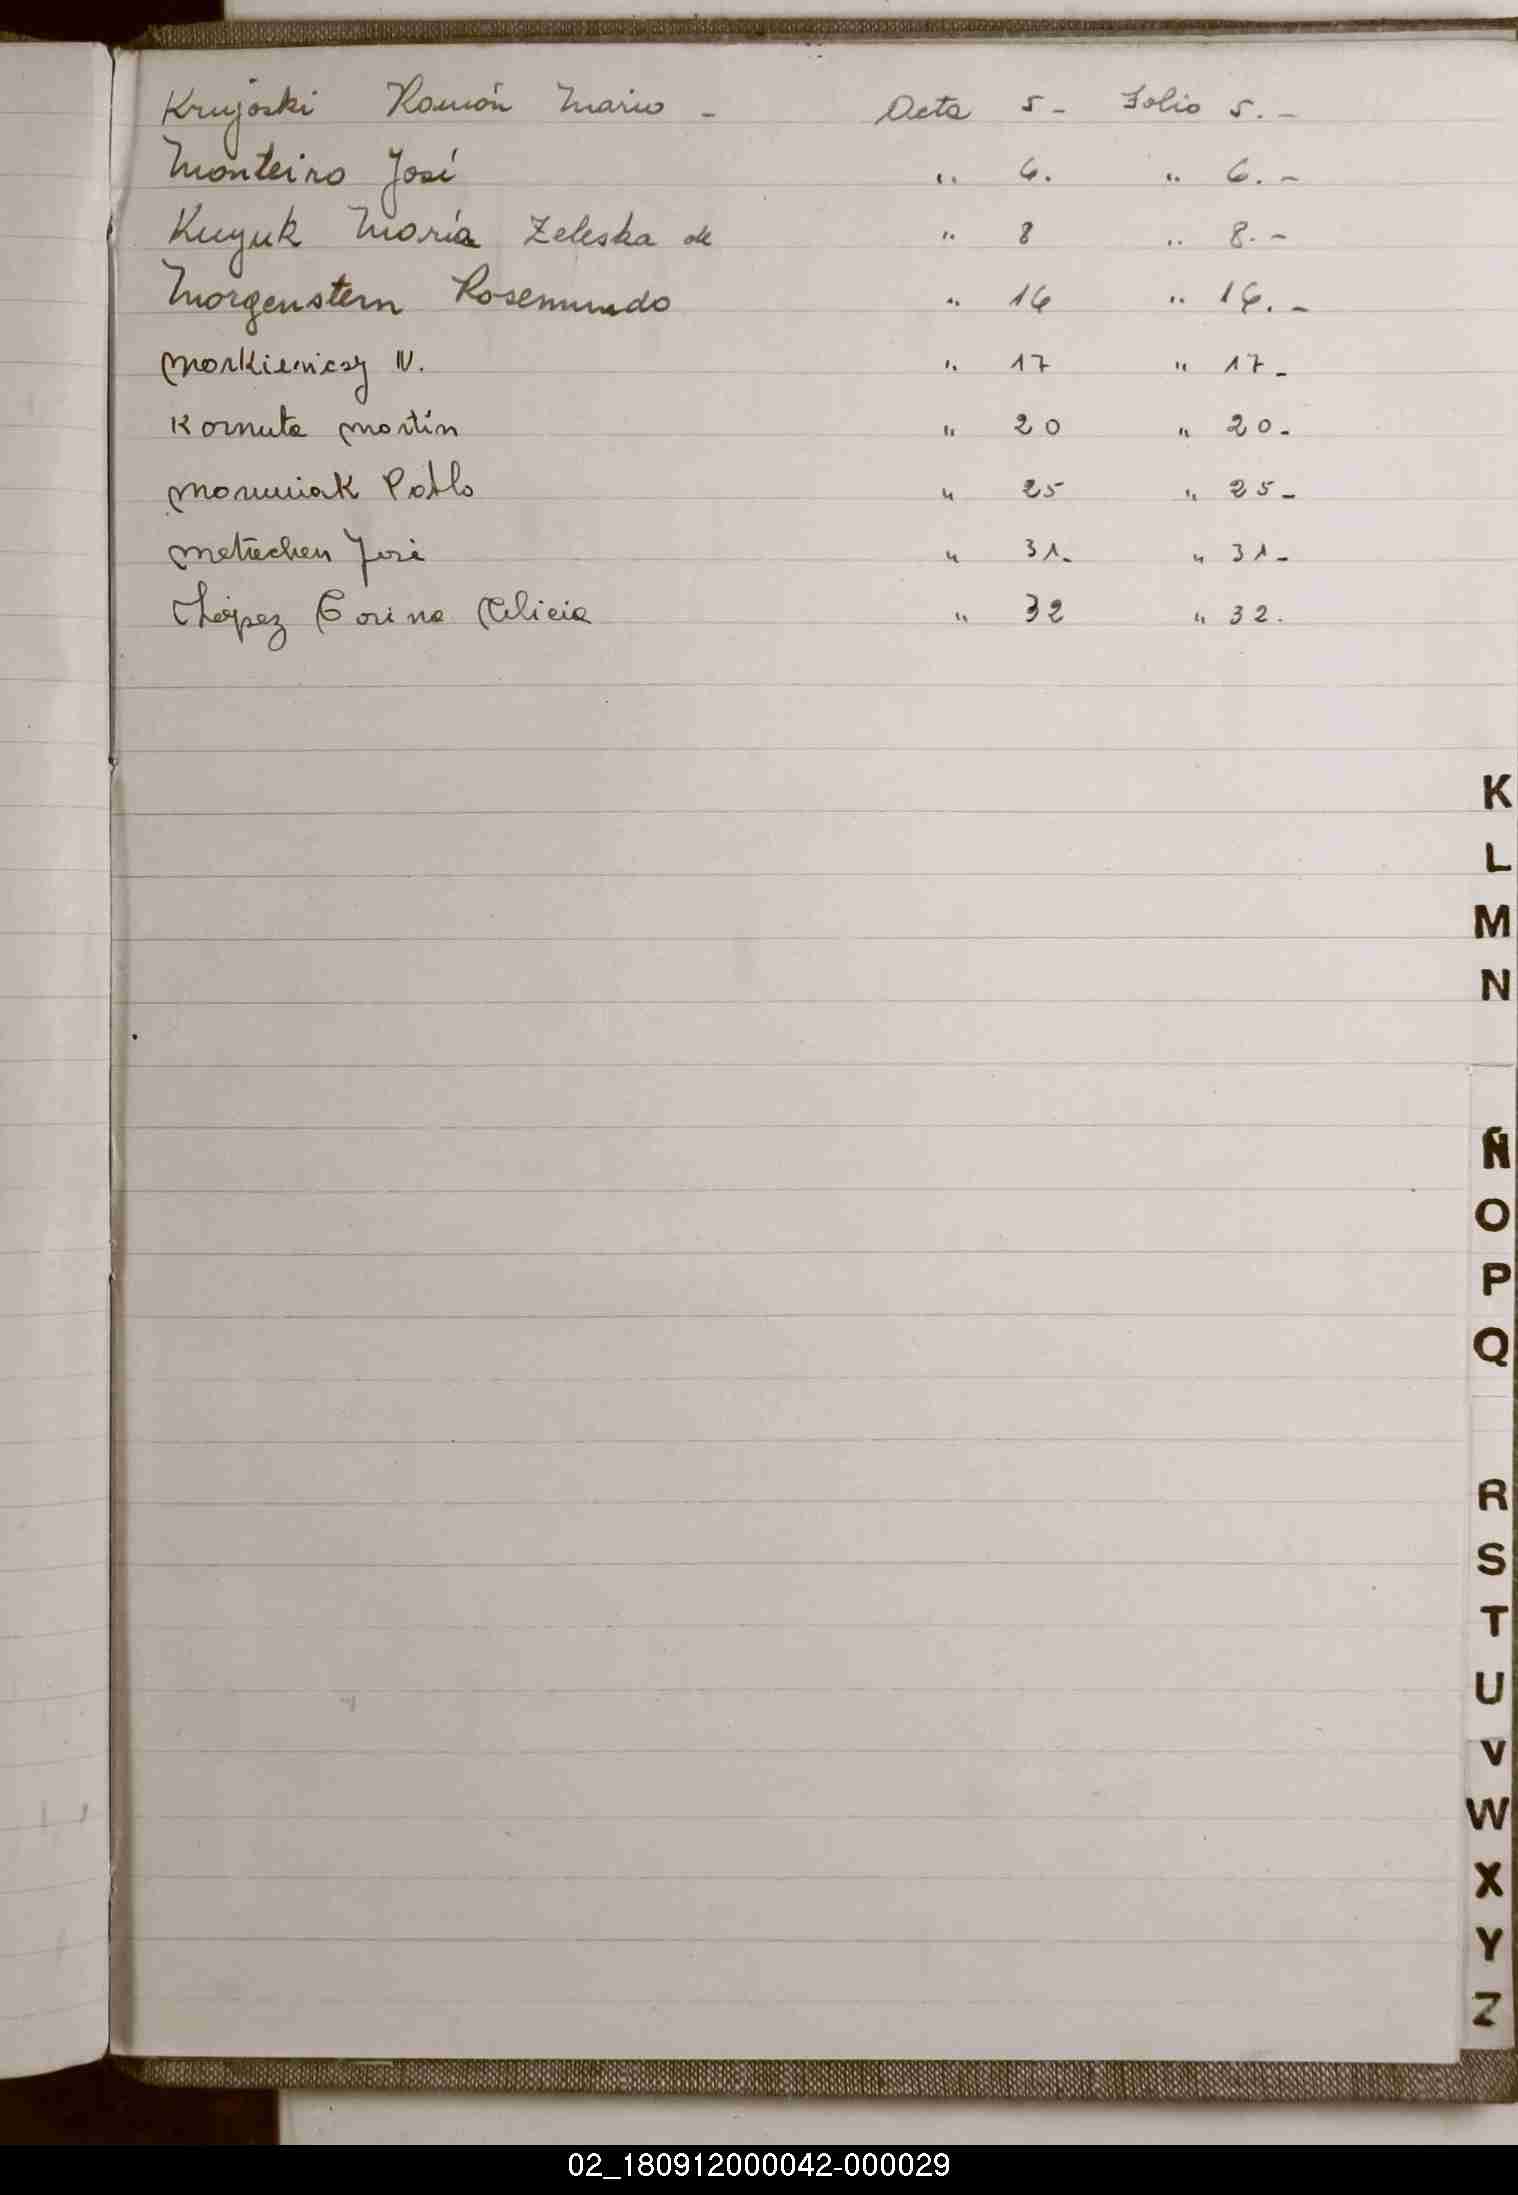 Krujoski Ramón Mario - Acta 5 - Folio 5. -
Monteiro José " 6. " 6. -
Kuyuk María Zeleska de " 8 " 8. -
Morgenstern Rosemundo " 16 " 16. -
Markiewicz N. " 17 " 17 -
Kornuta Martín " 20 " 20 -
Pablo " 25 " 25 -
Metrechen José " 31 - " 31 -
López Corina Alicia " 32 " 32.
K
L
M
N
Ñ
O
P
Q
R
S
T
U
V
W
X
Y
Z
02_180912000042-000029